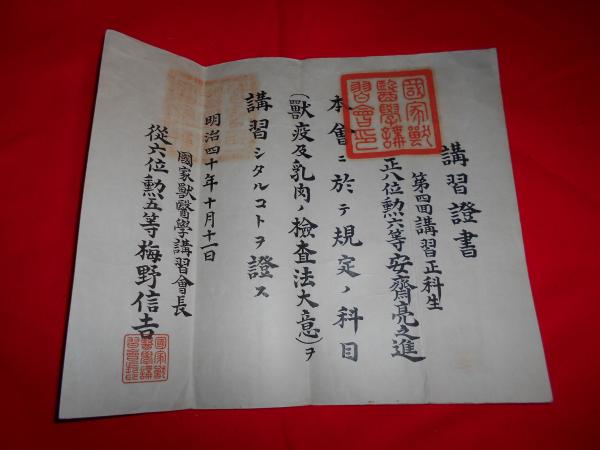 講習證書
第四回講習正科生
正八位勲六等安齋亮之進
本會ニ於テ規定ノ科目
(獸疫及乳肉ノ檢査法大意)ヲ
講習シタルコトヲ證ス
明治四十年十月十一日
國家獸醫學講習會長
從六位勲五等梅野信吉
國家獸醫學講習會印
國家獸醫學講習會長印